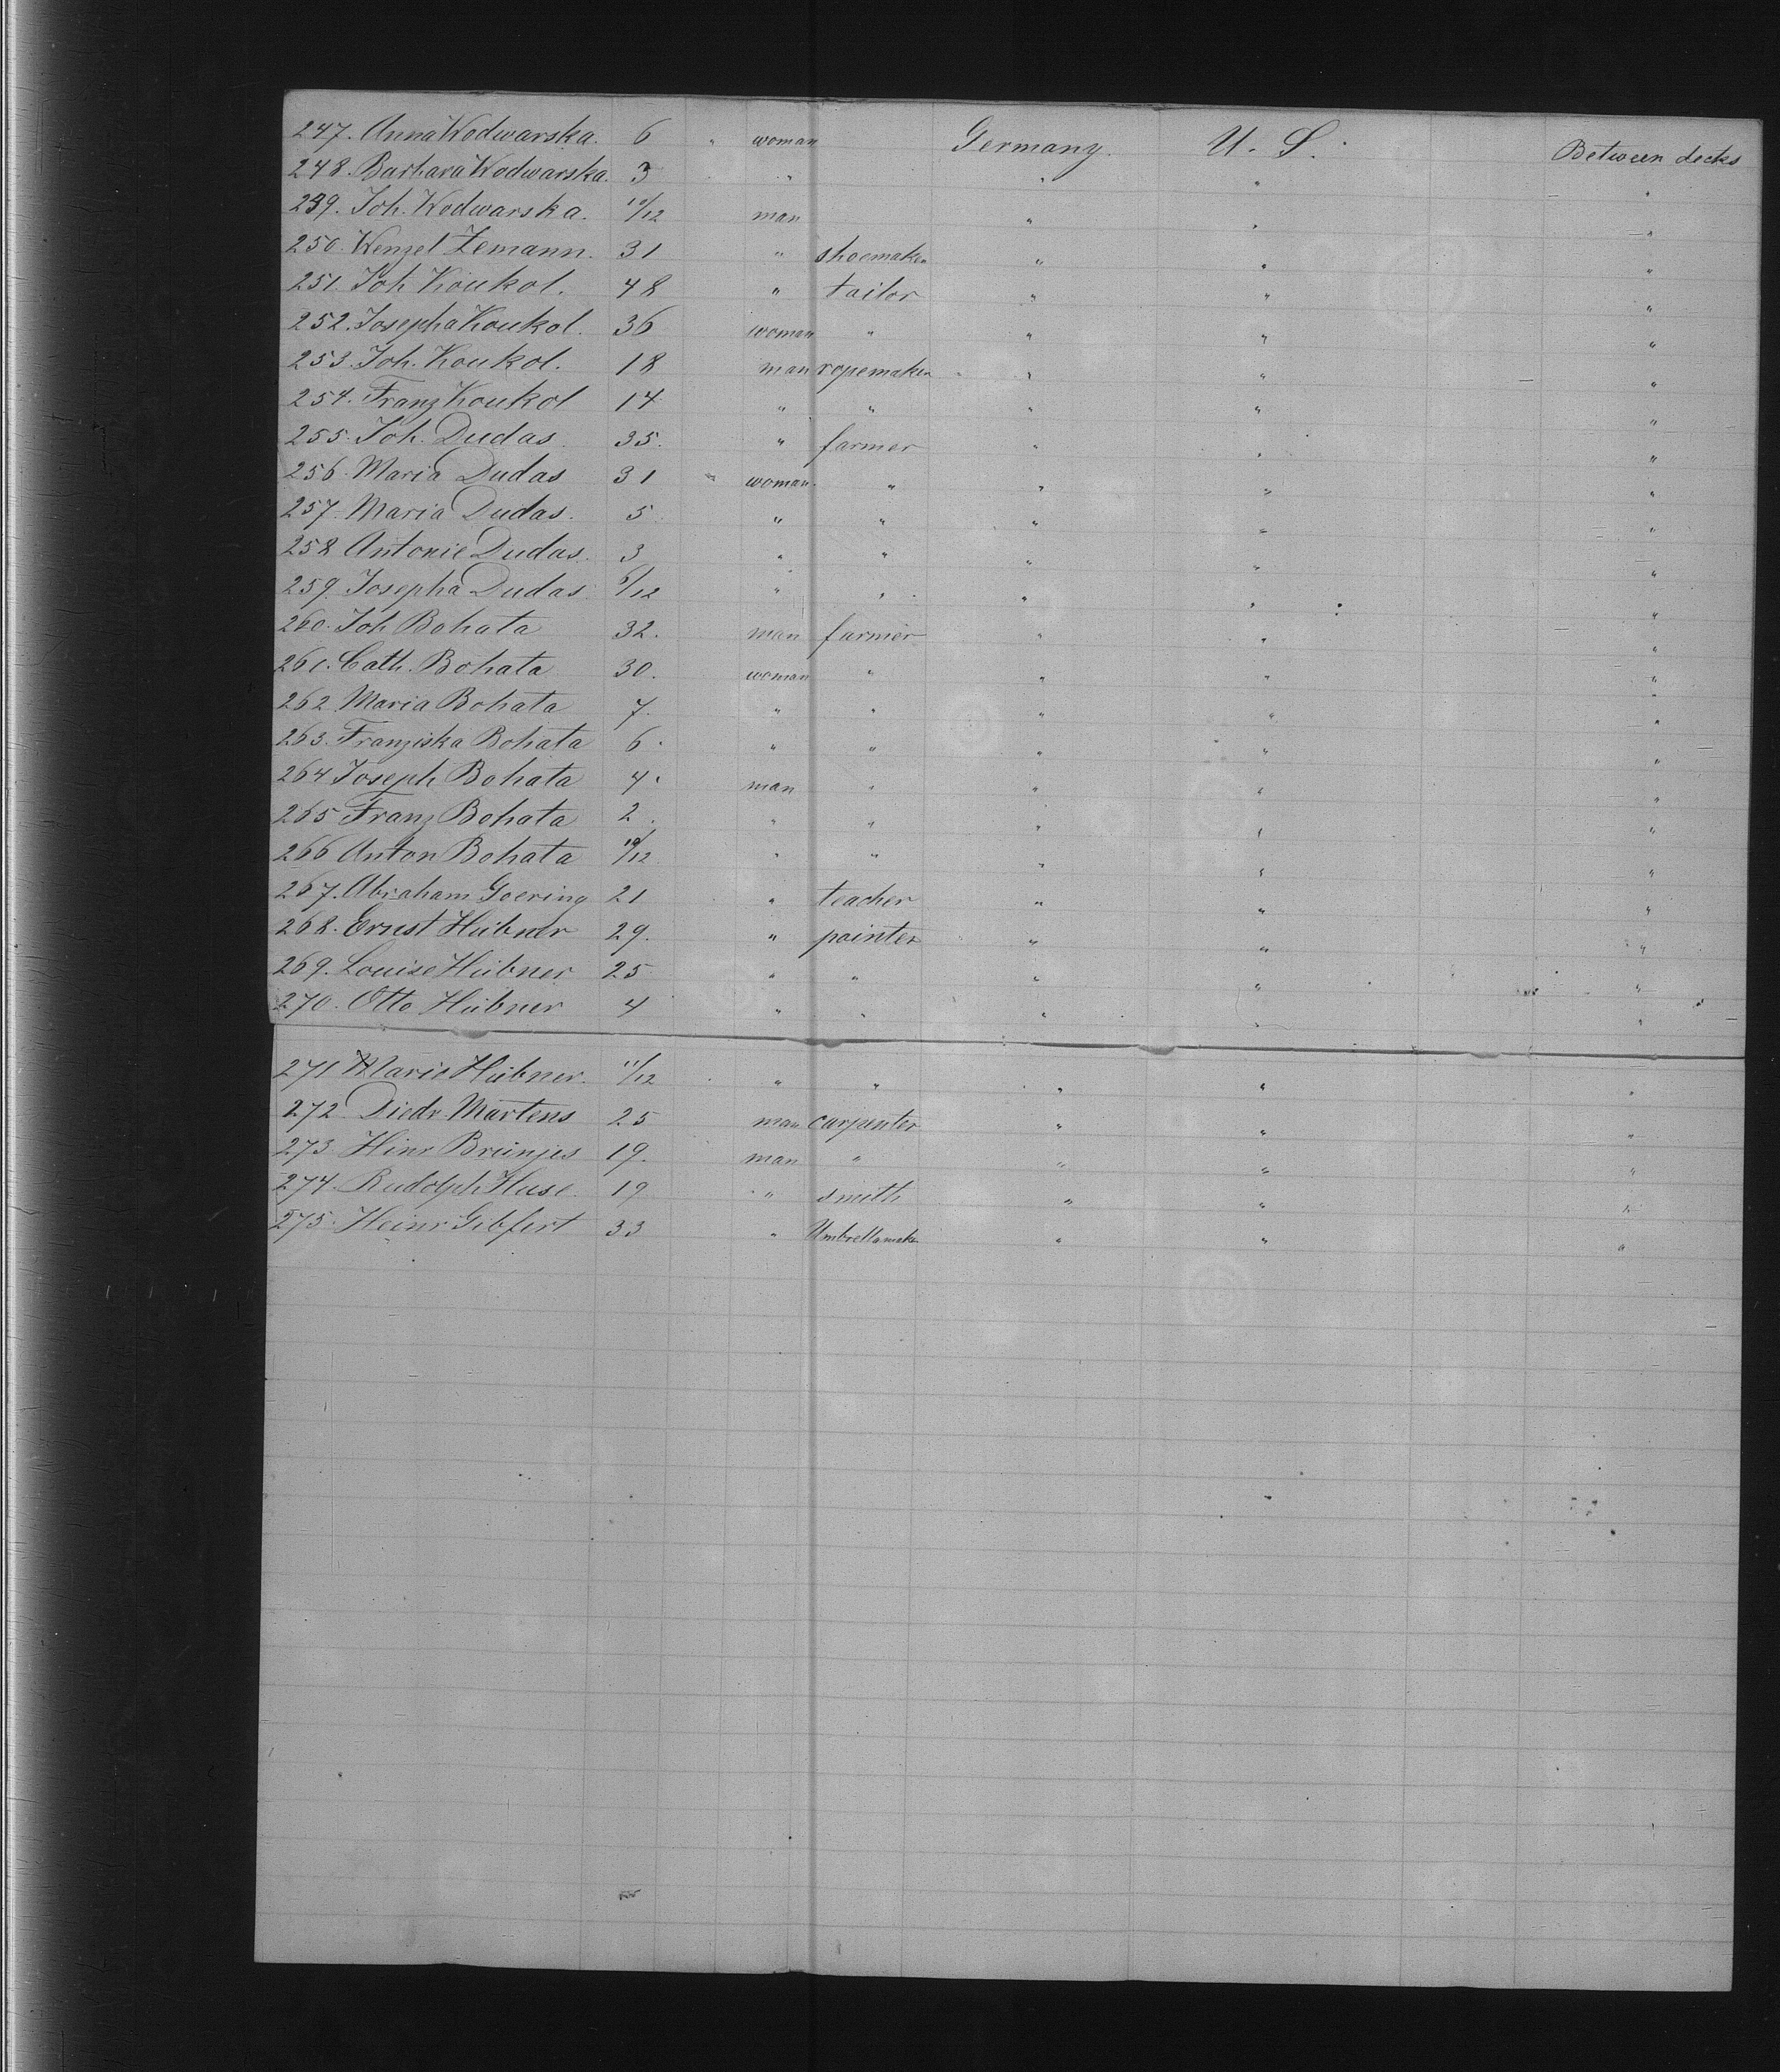 247. Anna Wodwarska. 6 " woman Germany. U. S. Between decks
248. Barbara Wodwarska. 3 " " " "
239. Joh. Wodwarska. 10/12 man " " "
250. Wenzel Zemann. 31 " shoemaker " " "
251. Joh Koukol. 48 " tailor " " "
252. Josepha Koukol. 36 woman " " " "
253. Joh. Koukol. 18 man ropemaker " " "
254. Franz Koukol 14 " " " " "
255. Joh. Dudas. 35. " farmer " " "
256. Maria Dudas 31 " woman " " " "
257. Maria Dudas. 5 " " " " "
258 Antonie Dudas. 3 " " " " "
259. Josepha Dudas 6/12 " " " " "
260. Joh Bohata 32. man farmer " " "
261. Cath. Bohata 30. woman " " " "
262 Maria Bohata 7. " " " " "
263. Franziska Bohata 6. " " " " "
264 Joseph Bohata 4. man " " " "
265 Franz Bohata 2. " " " " "
266 Anton Bohata 10/12 " " " " "
267. Abraham Goering 21 " teacher " " "
268. Ernst Hübner 29. " painter " " "
269. Louise Hübner 25 " " " " "
270. Otto Hübner 4 " " " " "
271 Marie Hübner. 11/12 " " " " "
272 Diedr. Martens 25 man carpenter " " "
273 Hinr Brünjes 19. man " " " "
274. Rudolph Huse. 19 " smith " " "
275. Heinr 33 " Umbrellamaker " " "